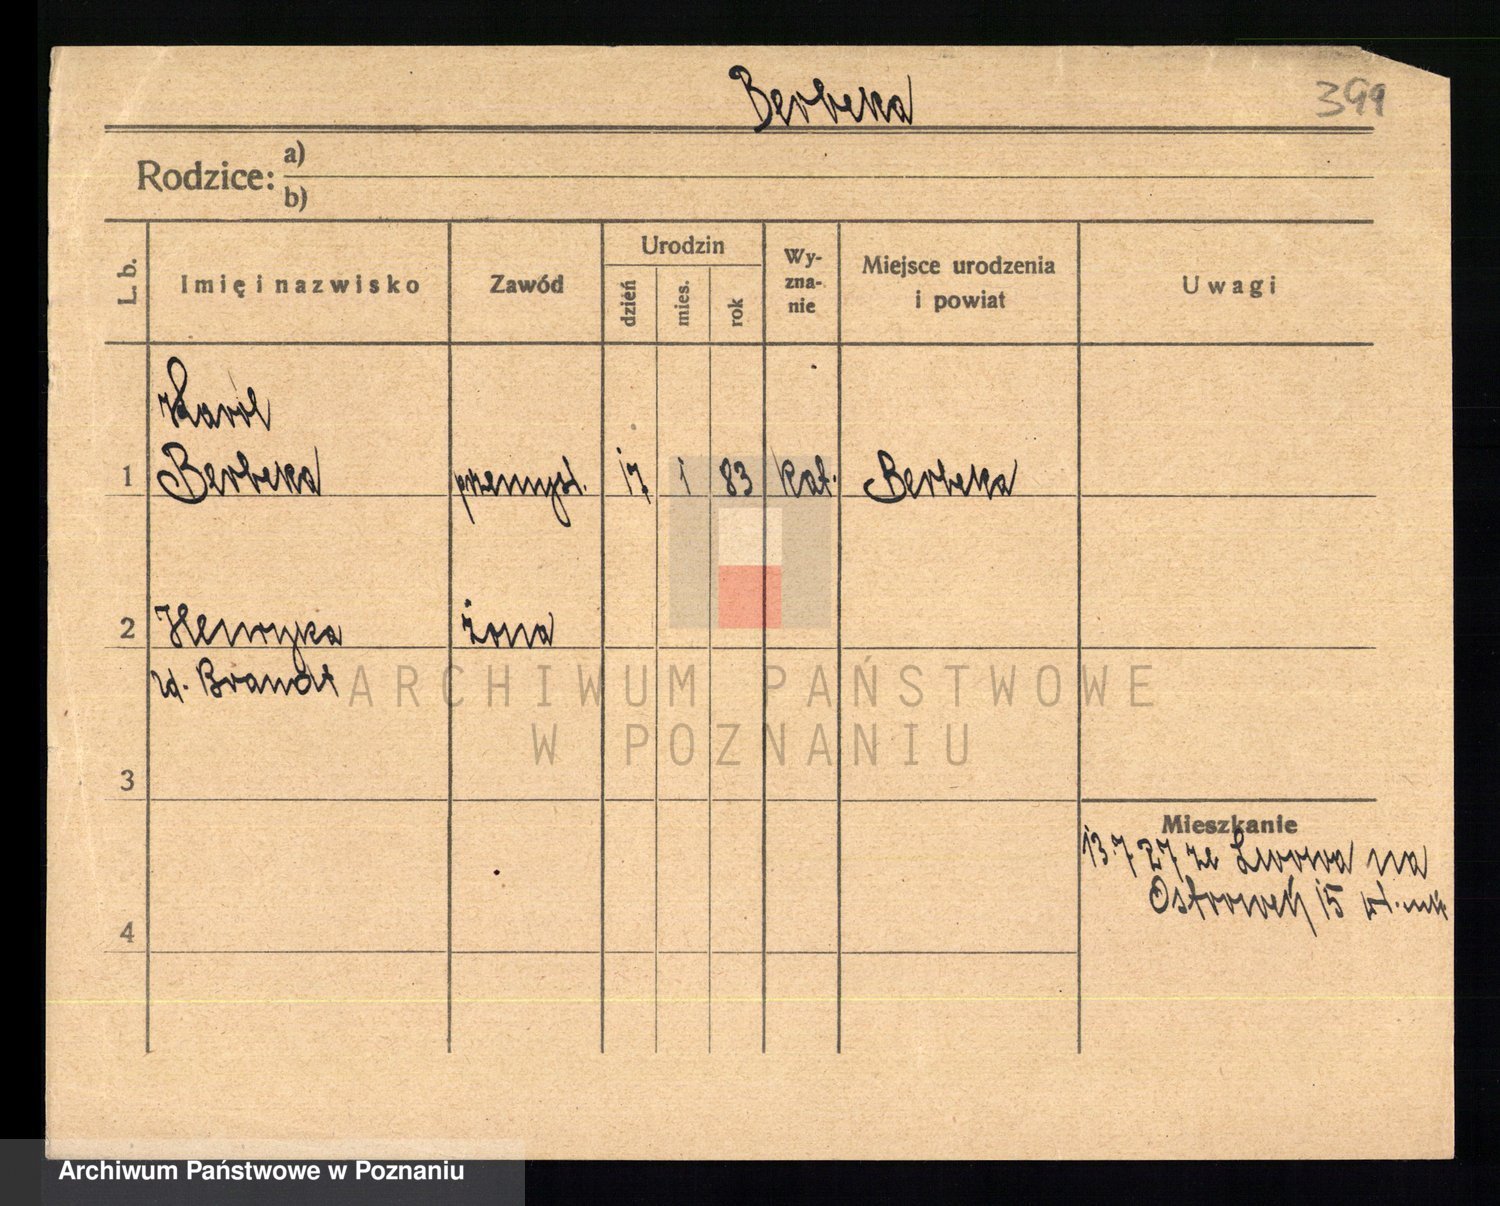 Berbeka
399
Rodzice: a)
b)
L. b.
Imię i nazwisko
Zawód
Urodzin
dzień
mies.
rok
Wy-
zna-
nie
Miejsce urodzenia
i powiat
Uwagi
Karol
1 Berbeka przemysł. 17 1 83 kat. Berbeka
2 Henryka żona
zd. Brandt
ARCHIWUM PAŃSTWOWE
W POZNANIU
3
Mieszkanie
13.7 27 ze Lwowa na
15
4
Archiwum Państwowe w Poznaniu